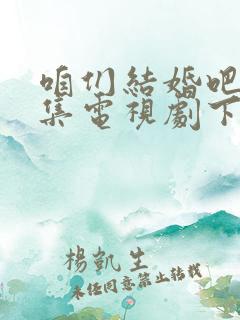 咱们結婚吧
集電視劇下
楊凱生
未经同意禁止转载